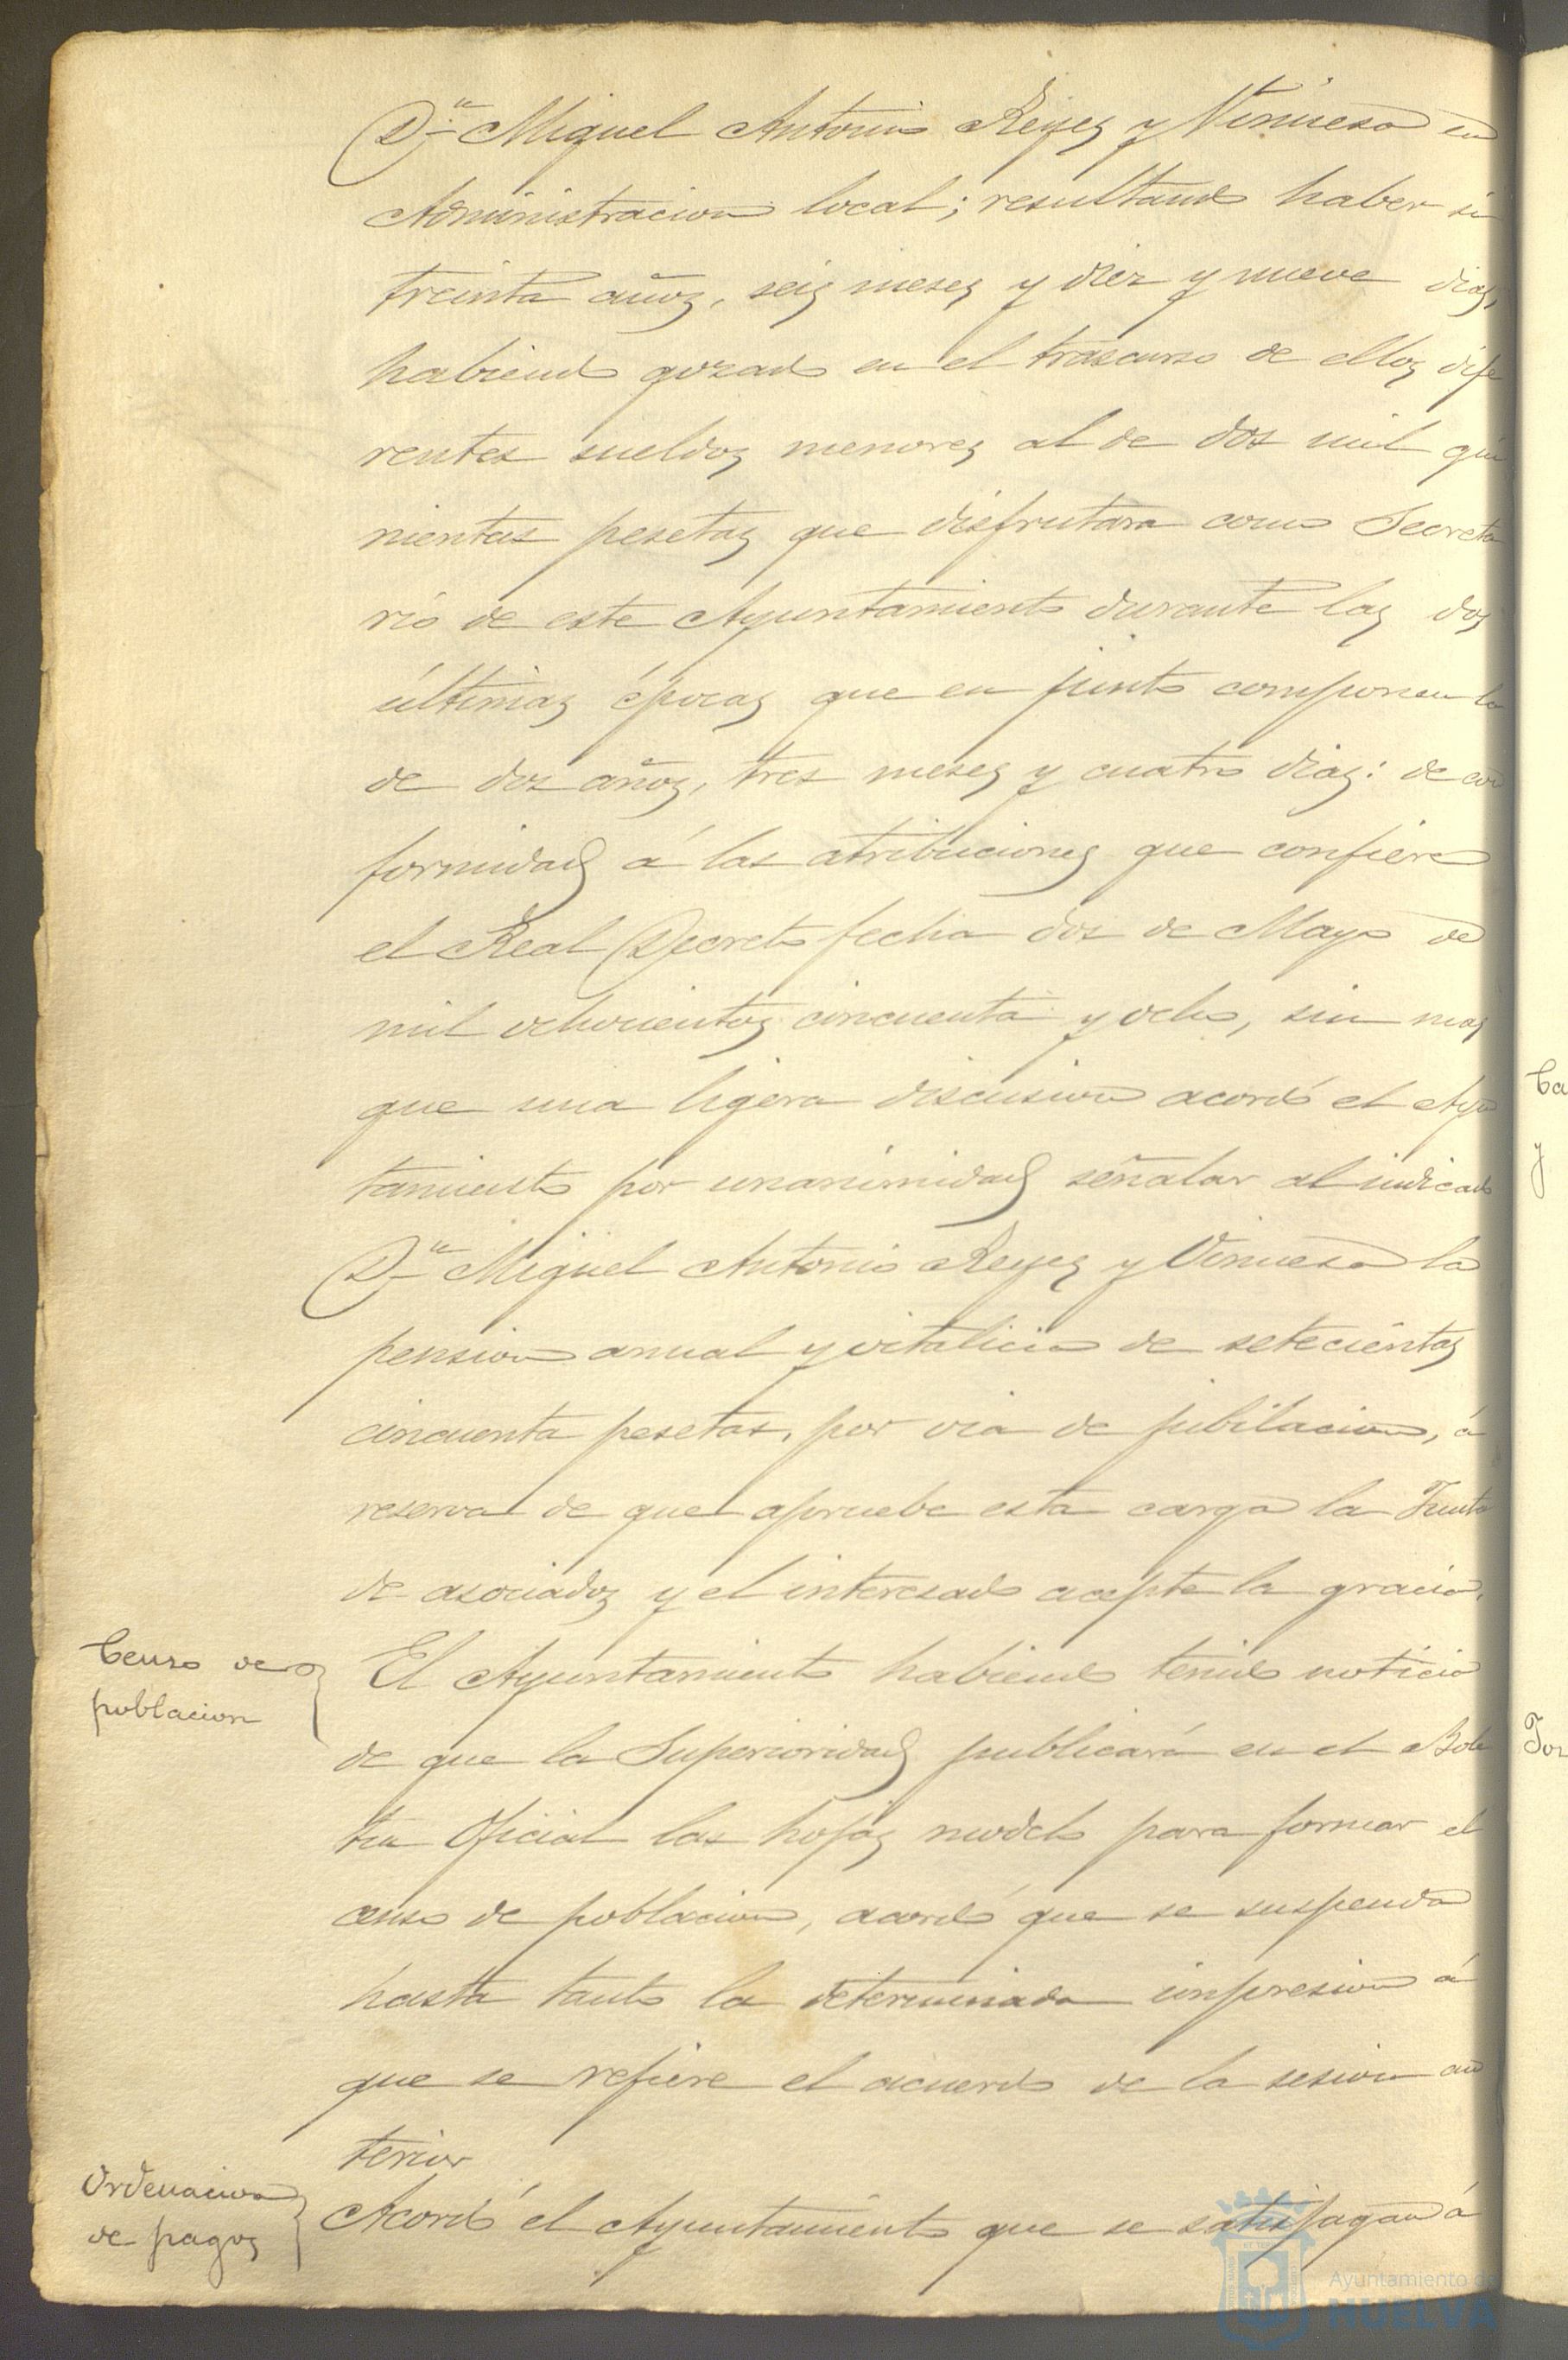 Dn Miguel Antonio Reyes y Vinuesa en
Administracion local; resultando haber si
treinta años, seis meses y diez y nueve dias,
habiendo gozado en el trascurso de ellos dife
rentes sueldos menores al de dos mil qui
nientas pesetas que disfrutara como Secreta
rio de este Ayuntamiento durante las dos
últimas épocas que en junto componen la
de dos años, tres meses y cuatro dias: de con
formidad á las atribuciones que confiere
el Real Decreto fecha dos de Mayo de
mil ochocientos cincuenta y ocho, sin mas
que una ligera discusion acordó el Ayun
tamiento por unanimidad señalar al indicado
Dn Miguel Antonio Reyes y Vinuesa la
pension anual y vitalicia de setecientas
cincuenta pesetas, por via de jubilacion, á
reserva de que apruebe esta carga la Junta
de asociados y el interesado acepte la gracia.
Censo de
poblacion
El Ayuntamiento habiendo tenido noticia
de que la Superioridad publicará en el Bole
tin Oficial las hojas modelo para formar el
censo de poblacion, acordó que se suspenda
hasta tanto la determinada impresion á
que se refiere el acuerdo de la sesion an
terior
Ordenacion
de pagos
Acordó el Ayuntamiento que se satisfagan á
Ca
y
For
Ayuntamiento de
HUELVA